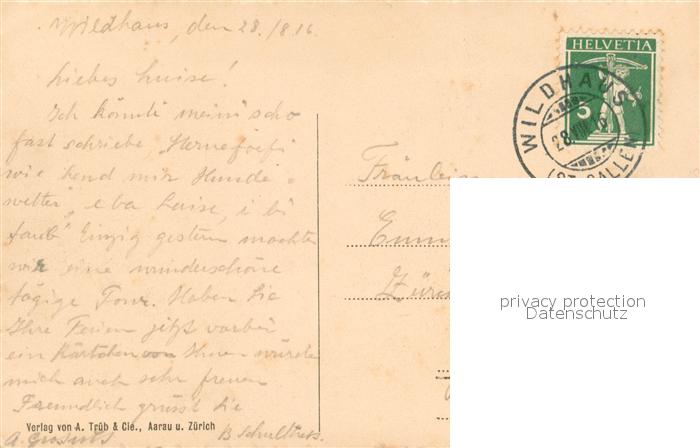 Wildhaus, den 28./8.16.
Liebes Luise!
Ich könnti meini scho
fast schriebe
wie hend mir Hunde-
wetter, e ba Luise, i bi
taub" Einzig gestern machten
wir eine wunderschöne
tägige Tour. Haben Sie
Ihre Ferien jetzt vorbei
ein Kärtchen von Ihnen würde
mich auch sehr freuen
Freundlich grüsst Sie
B. Schulthess.
Verlag von A. Trüb & Cie., Aarau u. Zürich
HELVETIA
5
WILDHAUS
28.VIII.16
(ST. GALLEN)
Fräulein
privacy protection
Datenschutz